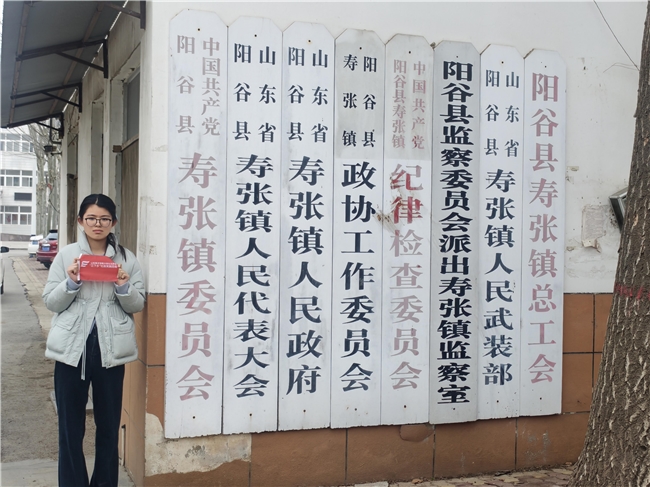 中国共产党
阳谷县
寿张镇委员会
山东省
阳谷县
寿张镇人民代表大会
山东省
阳谷县
寿张镇人民政府
阳谷县
寿张镇
政协工作委员会
中国共产党
阳谷县寿张镇
纪律检查委员会
阳谷县监察委员会派出寿张镇监察室
山东省
阳谷县
寿张镇人民武装部
阳谷县寿张镇总工会